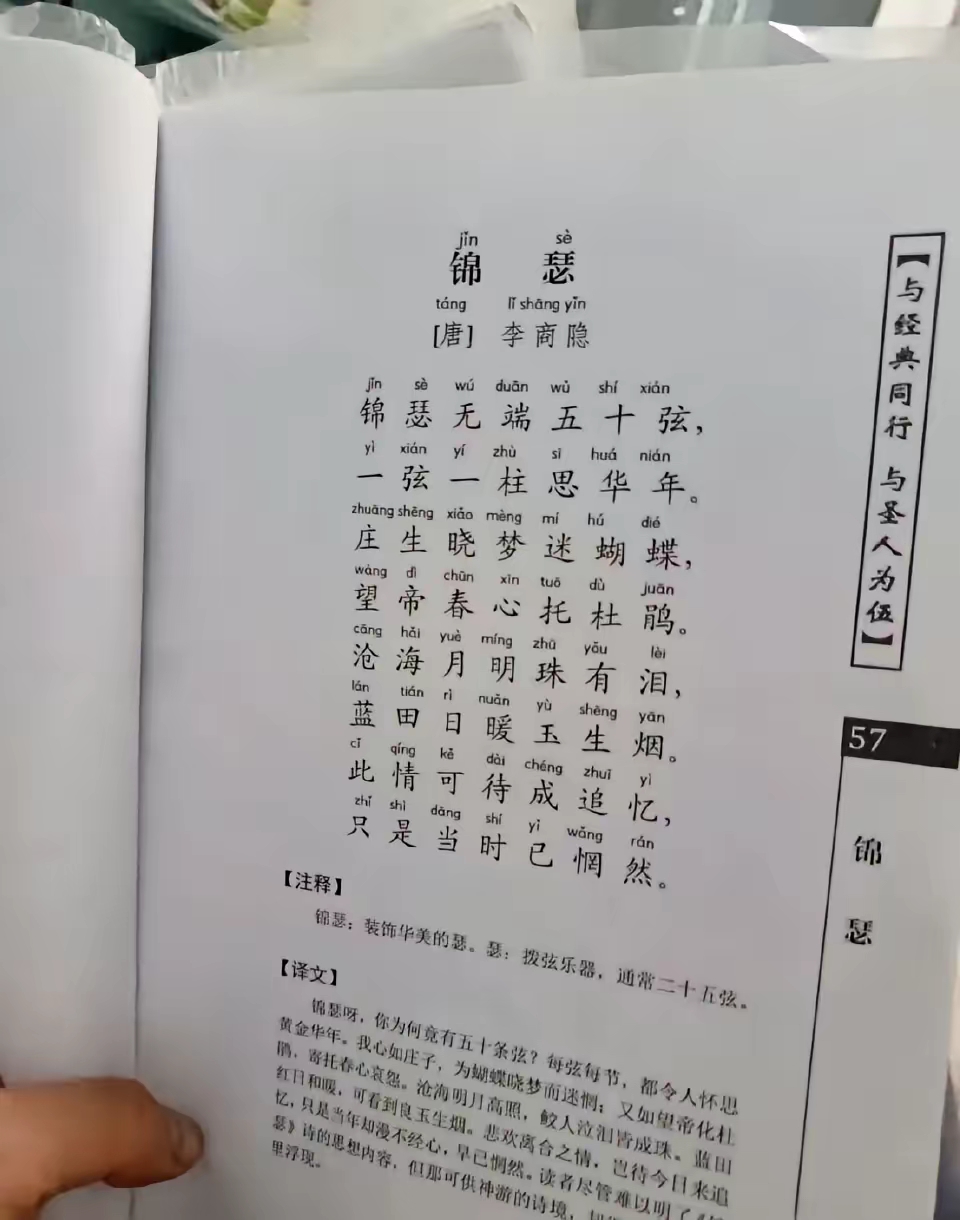 jǐn sè
锦 瑟
táng lǐ shāng yǐn
[唐] 李商隐
jǐn sè wú duān wǔ shí xián
锦瑟无端五十弦，
yì xián yí zhù sī huá nián
一弦一柱思华年。
zhuāng shēng xiǎo mèng mí hú dié
庄生晓梦迷蝴蝶，
wàng dì chūn xīn tuō dù juān
望帝春心托杜鹃。
cāng hǎi yuè míng zhū yǒu lèi
沧海月明珠有泪，
lán tián rì nuǎn yù shēng yān
蓝田日暖玉生烟。
cǐ qíng kě dài chéng zhuī yì
此情可待成追忆，
zhǐ shì dāng shí yǐ wǎng rán
只是当时已惘然。
【注释】
锦瑟：装饰华美的瑟。瑟：拨弦乐器，通常二十五弦。
【译文】
锦瑟呀，你为何竟有五十条弦？每弦每节，都令人怀思
黄金华年。我心如庄子，为蝴蝶晓梦而迷惘；又如望帝化杜
鹃，寄托春心哀怨。沧海明月高照，鲛人泣泪皆成珠。蓝田
红日和暖，可看到良玉生烟。悲欢离合之情，岂待今日来追
忆，只是当年却漫不经心，早已惘然。读者尽管难以明了《
瑟》诗的思想内容，但那可供神游的诗境，
里浮现。
【与经典同行 与圣人为伍】
57
锦瑟